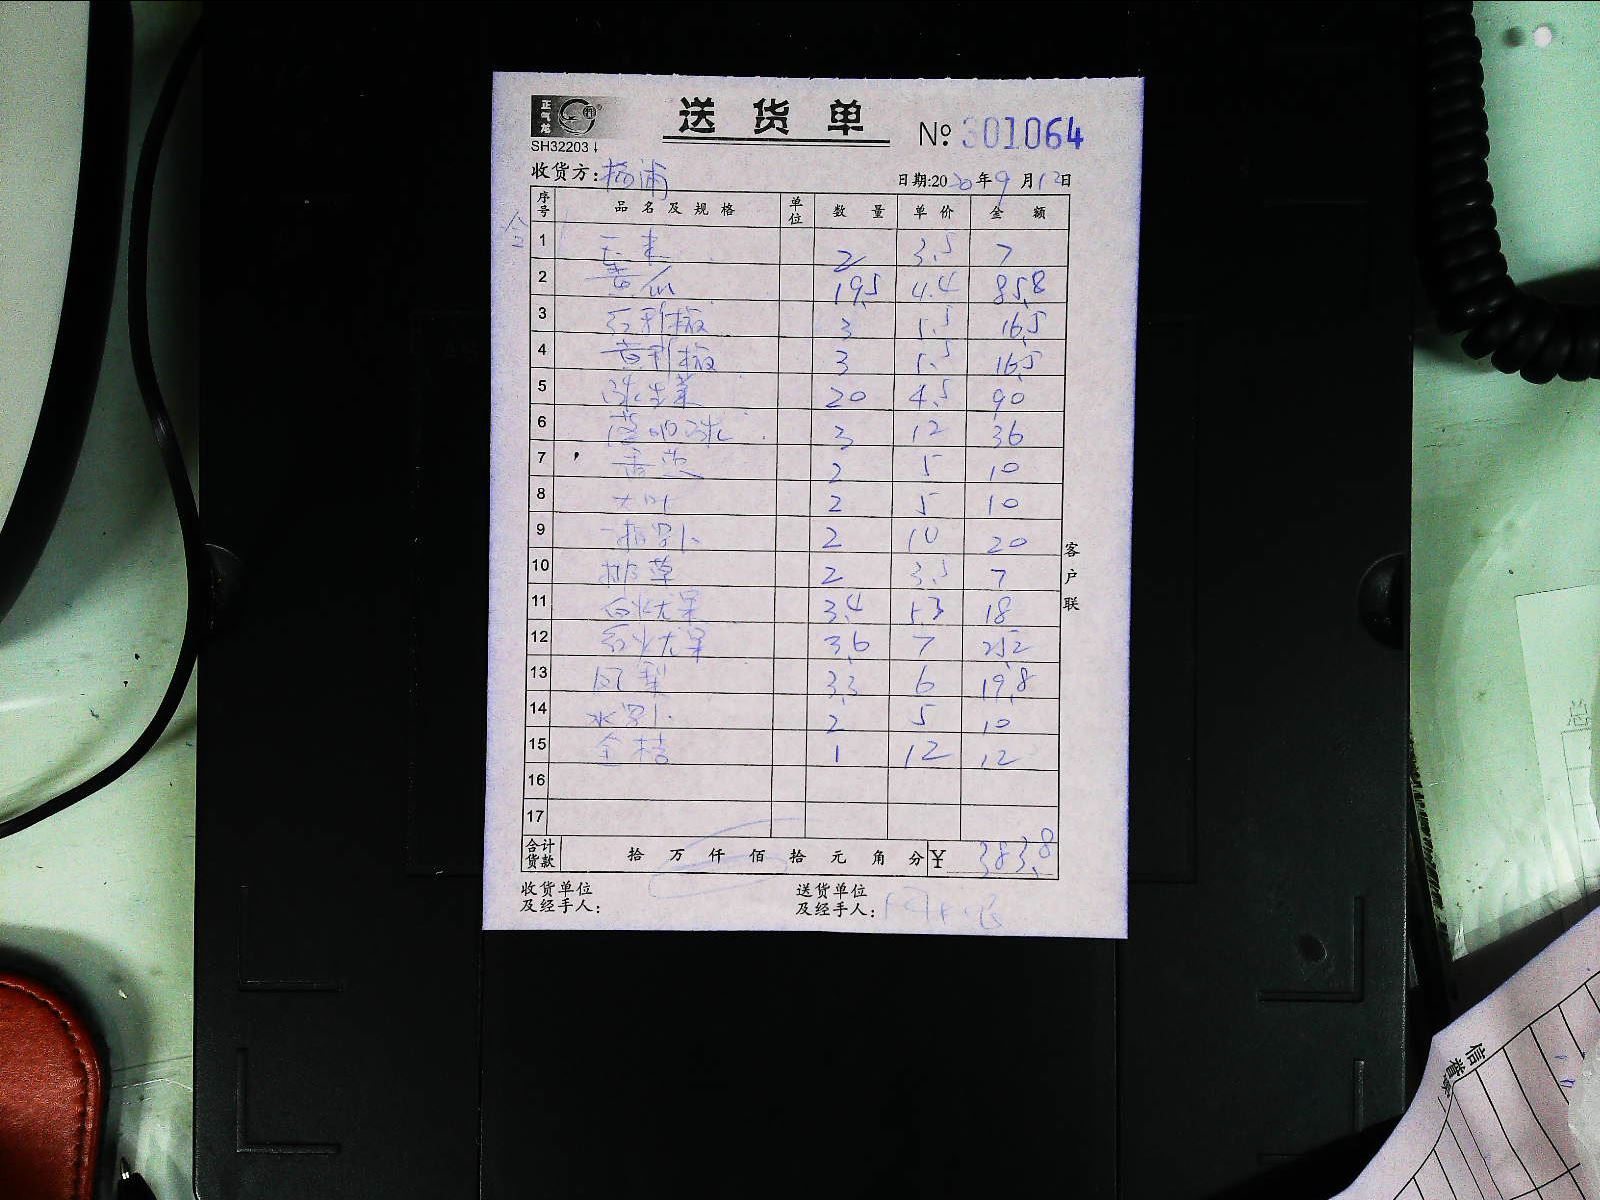 正气龙
送货单
SH32203
№ 301064
收货方: 杨浦 日期:2020年9月12日
序号 品名及规格 单位 数量 单价 金额
1 玉米 2 3.5 7
2 黄瓜 19.5 4.4 85.8
3 红彩椒 3 5.5 16.5
4 黄彩椒 3 5.5 16.5
5 球生菜 20 4.5 90
6 3 12 36
7 香菜 2 5 10
8 大叶 2 5 10
9 萝卜 2 10 20
10 2 3.5 7
11 白火龙果 3.4 5.3 18
12 红火龙果 3.6 7 25.2
13 凤梨 3.3 6 19.8
14 水萝卜 2 5 10
15 金桔 1 12 12
16
17
合计货款 拾 万 仟 佰 拾 元 角 分 ¥ 383.8
收货单位及经手人:
送货单位及经手人:
客户联
总
信誉